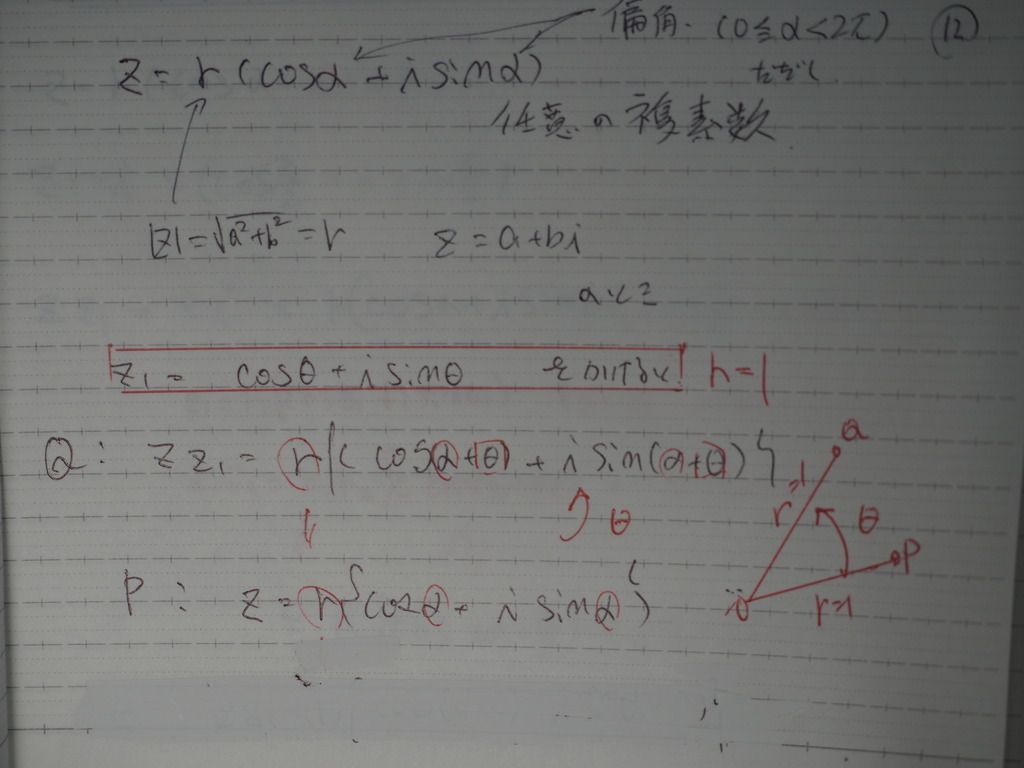 偏角. (0≦α<2π) ⑫
z = r (cosα + i sinα) ただし
任意の複素数.
|z| = √a²+b² = r z = a+bi
のとき
z₁ = cosθ + i sinθ をかけると! r=1
Q: z z₁ = r{(cos(α+θ) + i sin(α+θ)} Q
r=1
θ θ
P
P: z = r{cosα + i sinα} O r=1